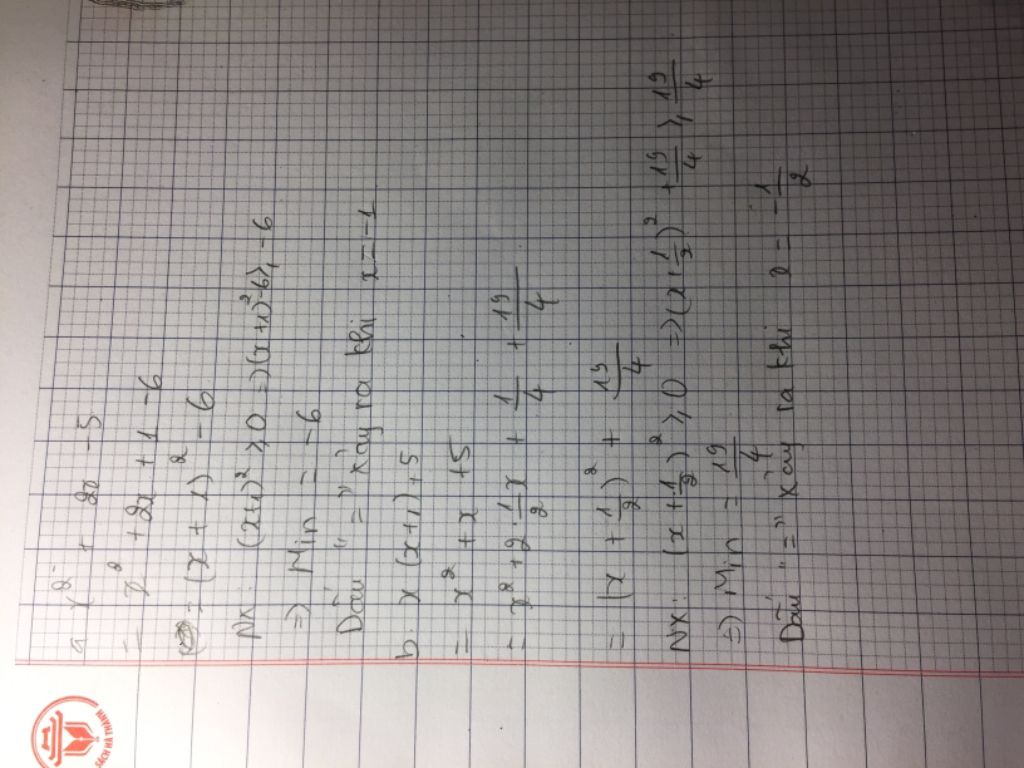 a x² + 2x - 5
= x² + 2x + 1 - 6
= (x + 1)² - 6
NX: (x+1)² ≥ 0 => (x+1)² - 6 ≥ -6
=> Min = -6
Dấu "=" xảy ra khi x = -1
b x (x+1) + 5
= x² + x + 5
= x² + 2 . 1/2 x + 1/4 + 19/4
= (x + 1/2)² + 19/4
NX: (x + 1/2)² ≥ 0 => (x + 1/2)² + 19/4 ≥ 19/4
=> Min = 19/4
Dấu "=" xảy ra khi x = -1/2
SÁCH HÀ THÀNH